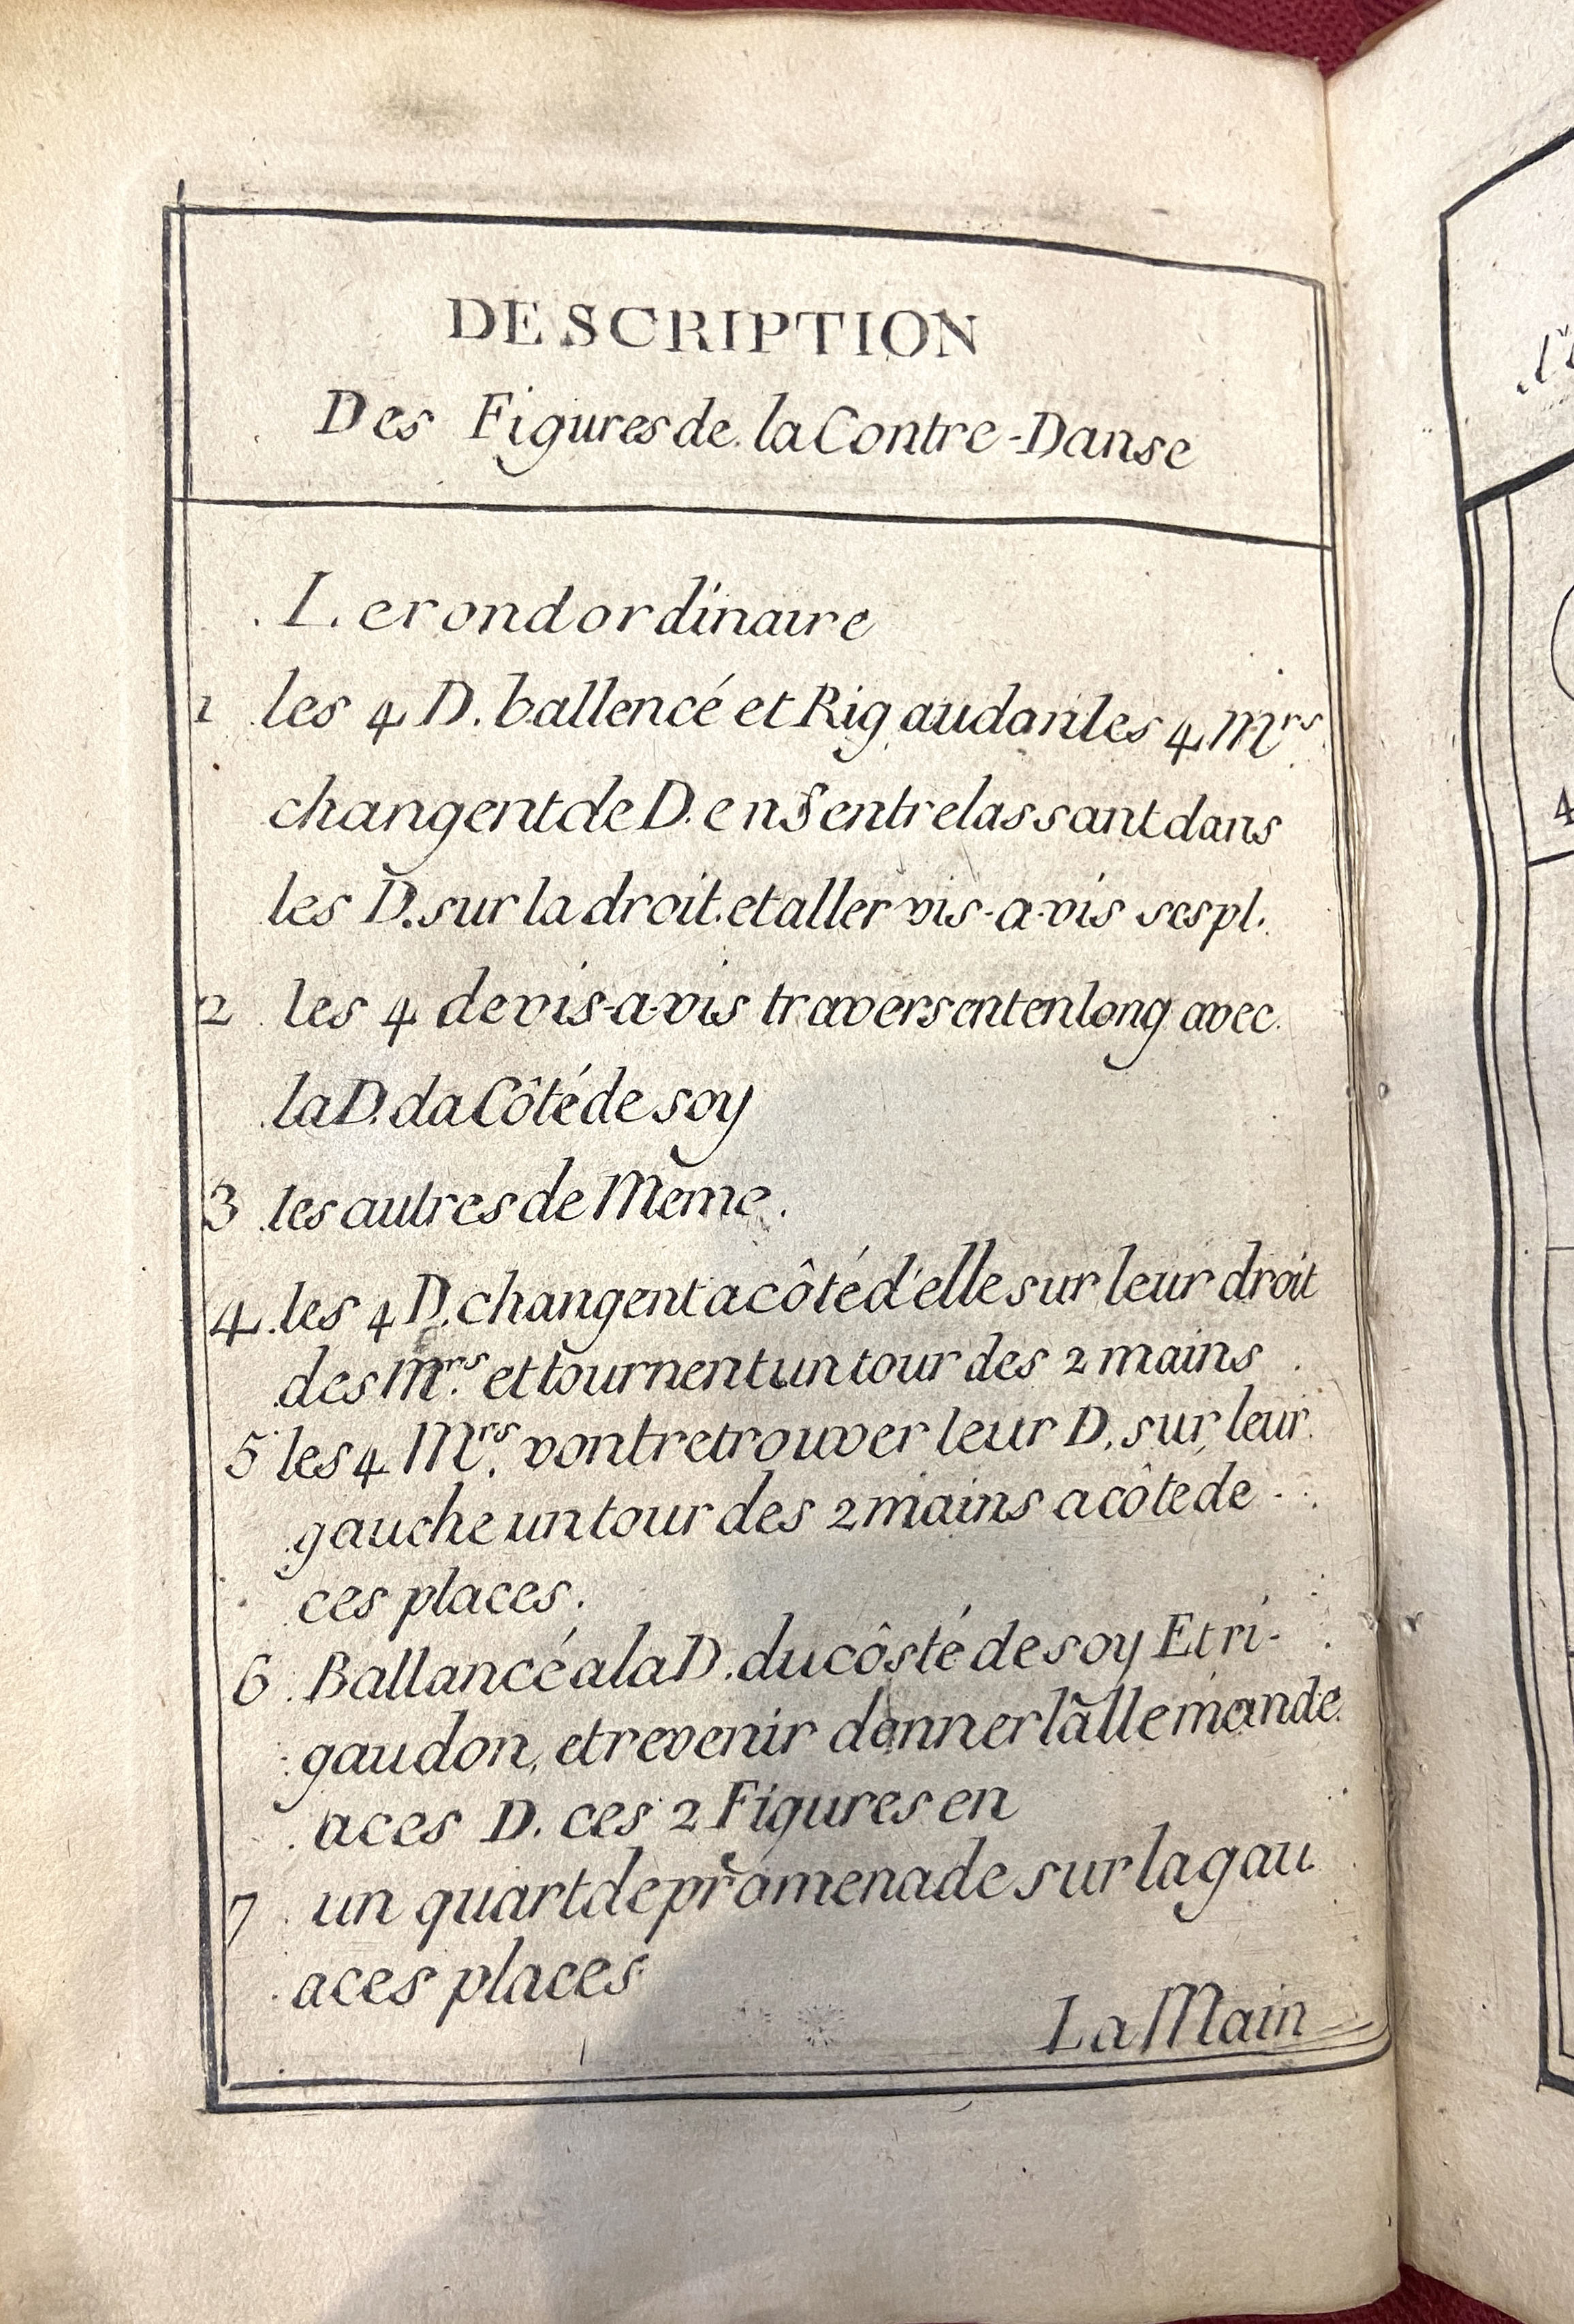 DESCRIPTION
Des Figures de la Contre-Danse
Le rond ordinaire
1 les 4 D. ballencé et Rigaudon les 4 Mrs
changent de D. en S entrelassant dans
les D. sur la droit. et aller vis-a-vis ses pl.
2 les 4 de vis-a-vis traversent en long avec
la D. da Côté de soy
3 les autres de Meme.
4 les 4 D. changent a côté d'elle sur leur droit
des Mrs et tournent un tour des 2 mains
5 les 4 Mrs vont retrouver leur D. sur leur
gauche un tour des 2 mains a côte de
ces places.
6 Ballancé a la D. du côsté de soy Et ri-
gaudon, et revenir donner lallemande
a ces D. ces 2 Figures en
7 un quart de promenade sur la gau
a ces places
La Main
4